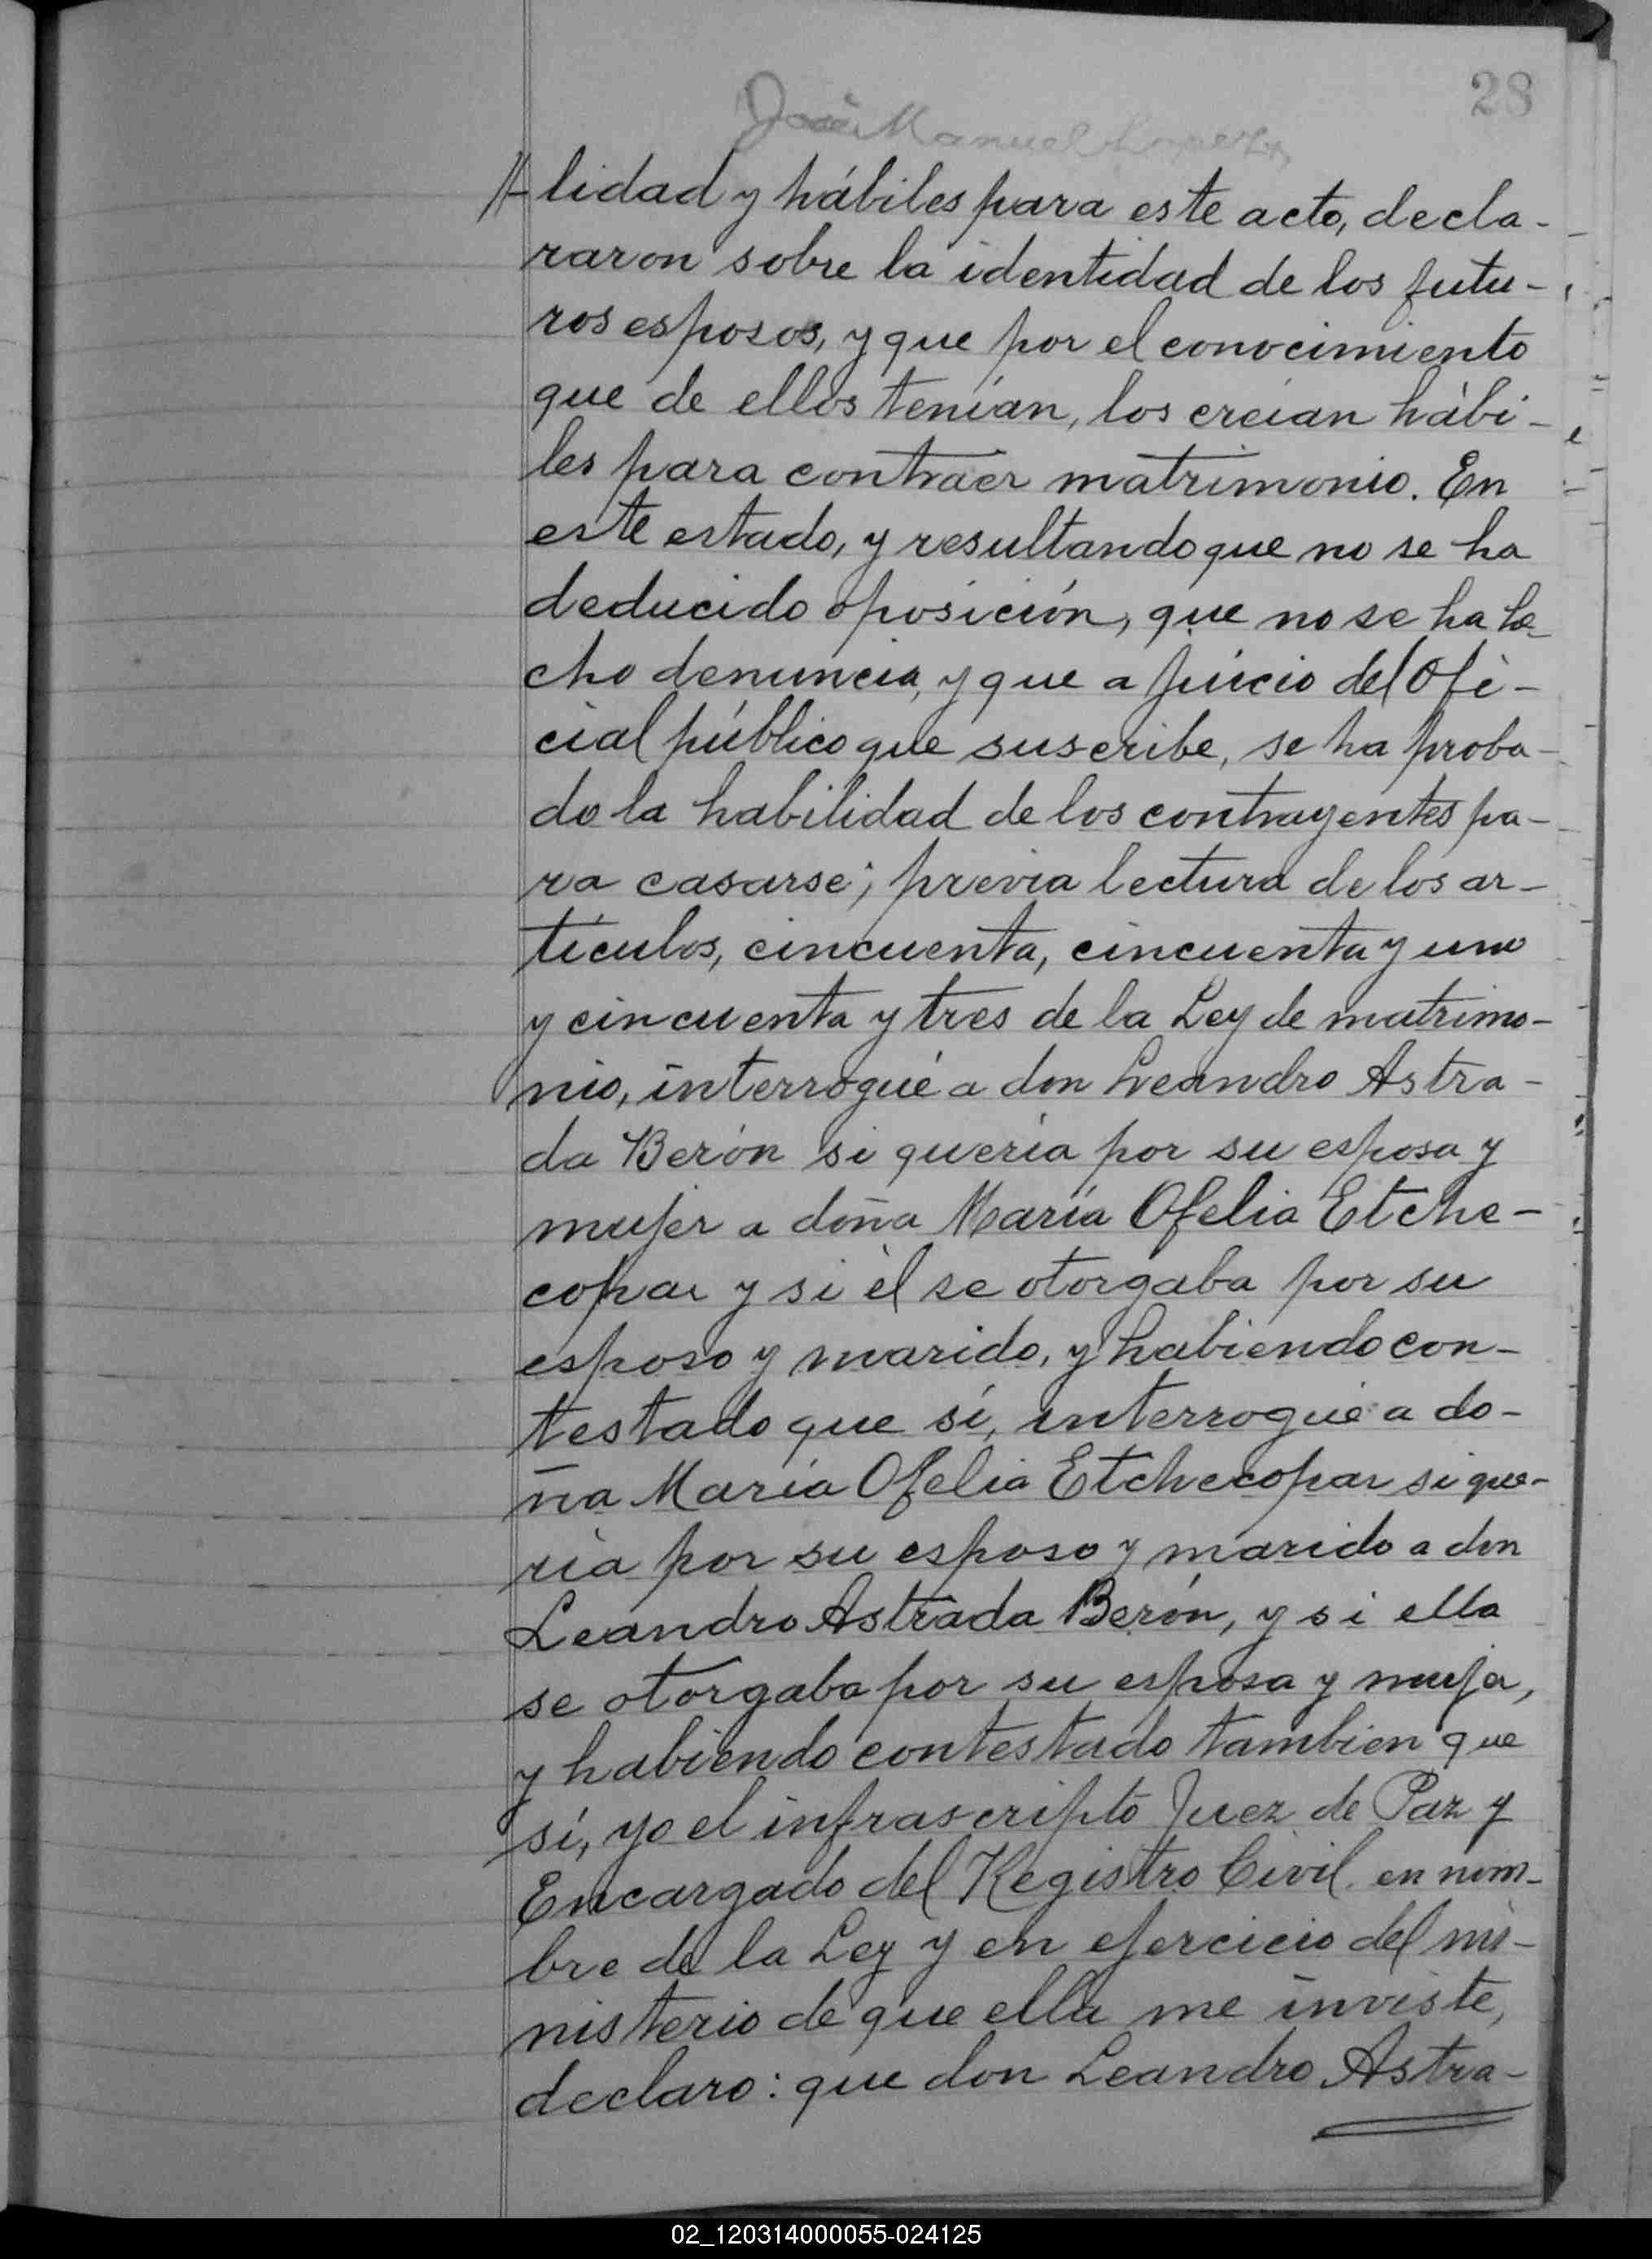 28
José Manuel Lopez
//-lidad y hábiles para este acto, decla-
raron sobre la identidad de los futu-
ros esposos, y que por el conocimiento
que de ellos tenían, los creían hábi-
les para contraer matrimonio. En
este estado, y resultando que no se ha
deducido oposición, que no se ha he-
cho denuncia, y que a juicio del Ofi-
cial público que suscribe, se ha proba-
do la habilidad de los contrayentes pa-
ra casarse; previa lectura de los ar-
tículos, cincuenta, cincuenta y uno
y cincuenta y tres de la Ley de matrimo-
nio, interrogué a don Leandro Astra-
da Berón si quería por su esposa y
mujer a doña María Ofelia Etche-
copar y si él se otorgaba por su
esposo y marido, y habiendo con-
testado que sí, interrogué a do-
ña María Ofelia Etchecopar si que-
ría por su esposo y marido a don
Leandro Astrada Berón, y si ella
se otorgaba por su esposa y mujer,
y habiendo contestado tambien que
sí, yo el infrascripto Juez de Paz y
Encargado del Registro Civil, en nom-
bre de la Ley y en ejercicio del mi-
nisterio de que ella me inviste,
declaro: que don Leandro Astra-
02_120314000055-024125